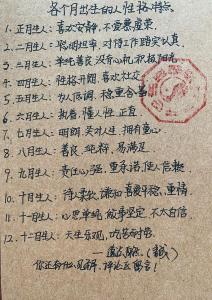 各个月出生的人性格特点
1、正月生人：喜欢安静，不爱慕虚荣
2、二月生人：聪明坦率，对待工作踏实认真
3、三月生人：单纯善良 没有心机 积极阳光
4、四月生人：性格开朗 喜欢社交
5、五月生人：为人低调 稳重含蓄
6、六月生人：执着 懂人性 正直
7、七月生人：明朗 关心人 拥有童心
8、八月生人：善良 纯粹 易满足
9、九月生人：责任心强 重承诺
10、十月生人：温柔 谦和 喜欢平稳 重情
11、十一月生人：心思单纯 做事坚定 不太自信
12、十二月生人：天生乐观 吃苦耐劳
你还有什么见解，评论区留言！